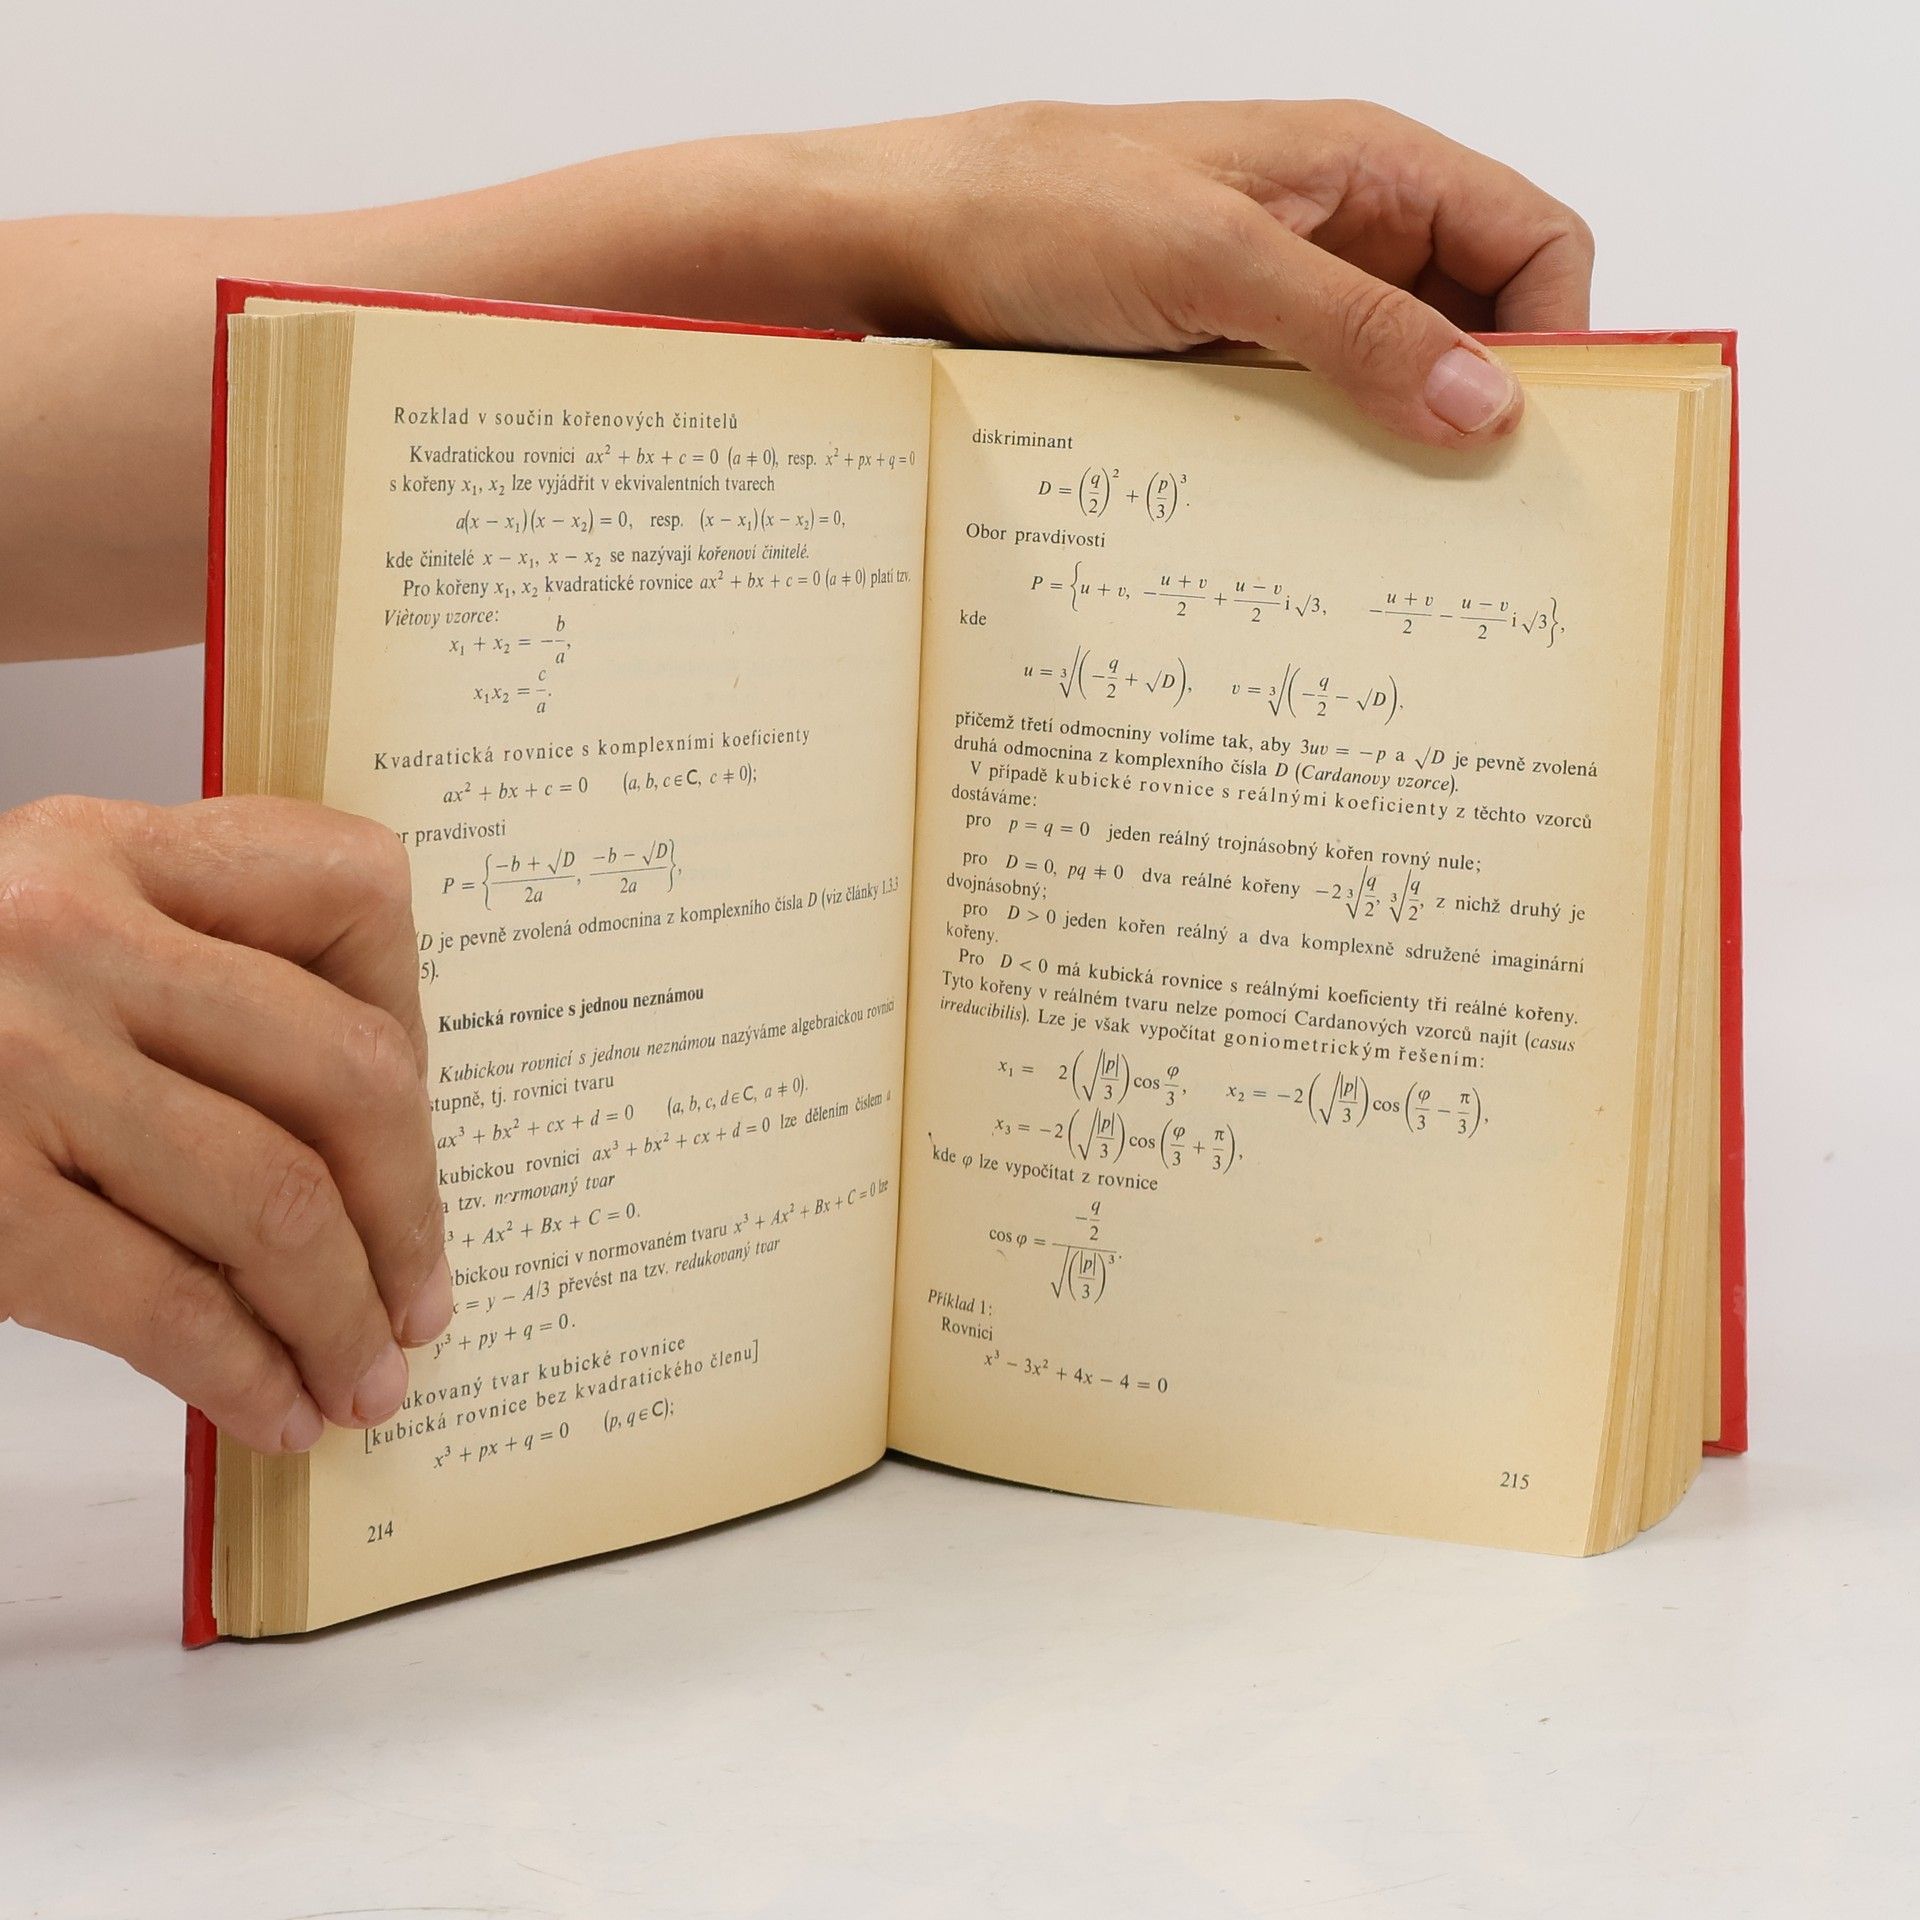 Rozklad v součin kořenových činitelů
Kvadratickou rovnici ax² + bx + c = 0 (a ≠ 0), resp. x² + px + q = 0
s kořeny x₁, x₂ lze vyjádřit v ekvivalentních tvarech
a(x − x₁)(x − x₂) = 0, resp. (x − x₁)(x − x₂) = 0,
kde činitelé x − x₁, x − x₂ se nazývají kořenoví činitelé.
Pro kořeny x₁, x₂ kvadratické rovnice ax² + bx + c = 0 (a ≠ 0) platí tzv.
Viètovy vzorce:
x₁ + x₂ = −b/a,
x₁x₂ = c/a.
Kvadratická rovnice s komplexními koeficienty
ax² + bx + c = 0 (a, b, c ∈ C, c ≠ 0);
pravdivosti
P = {(−b + √D)/2a, (−b − √D)/2a},
D je pevně zvolená odmocnina z komplexního čísla D (viz články 1.3.3
5).
Kubická rovnice s jednou neznámou
Kubickou rovnicí s jednou neznámou nazýváme algebraickou rovnici
stupně, tj. rovnici tvaru
ax³ + bx² + cx + d = 0 (a, b, c, d ∈ C, a ≠ 0).
kubickou rovnici ax³ + bx² + cx + d = 0 lze dělením číslem a
a tzv. normovaný tvar
³ + Ax² + Bx + C = 0.
bickou rovnici v normovaném tvaru x³ + Ax² + Bx + C = 0 lze
x = y − A/3 převést na tzv. redukovaný tvar
y³ + py + q = 0.
ukovaný tvar kubické rovnice
[kubická rovnice bez kvadratického členu]
x³ + px + q = 0 (p, q ∈ C);
214
diskriminant
D = (q/2)² + (p/3)³.
Obor pravdivosti
P = {u + v, −(u + v)/2 + (u − v)/2 i √3, −(u + v)/2 − (u − v)/2 i √3},
kde
u = ³√(−q/2 + √D), v = ³√(−q/2 − √D),
přičemž třetí odmocniny volíme tak, aby 3uv = −p a √D je pevně zvolená
druhá odmocnina z komplexního čísla D (Cardanovy vzorce).
V případě kubické rovnice s reálnými koeficienty z těchto vzorců
dostáváme:
pro p = q = 0 jeden reálný trojnásobný kořen rovný nule;
pro D = 0, pq ≠ 0 dva reálné kořeny −2 ³√(q/2), ³√(q/2), z nichž druhý je
dvojnásobný;
pro D > 0 jeden kořen reálný a dva komplexně sdružené imaginární
kořeny.
Pro D < 0 má kubická rovnice s reálnými koeficienty tři reálné kořeny.
Tyto kořeny v reálném tvaru nelze pomocí Cardanových vzorců najít (casus
irreducibilis). Lze je však vypočítat goniometrickým řešením:
x₁ = 2(√(|p|/3)) cos φ/3, x₂ = −2(√(|p|/3)) cos (φ/3 − π/3),
x₃ = −2(√(|p|/3)) cos (φ/3 + π/3),
kde φ lze vypočítat z rovnice
cos φ = (−q/2)/√((|p|/3)³).
Příklad 1:
Rovnici
x³ − 3x² + 4x − 4 = 0
215